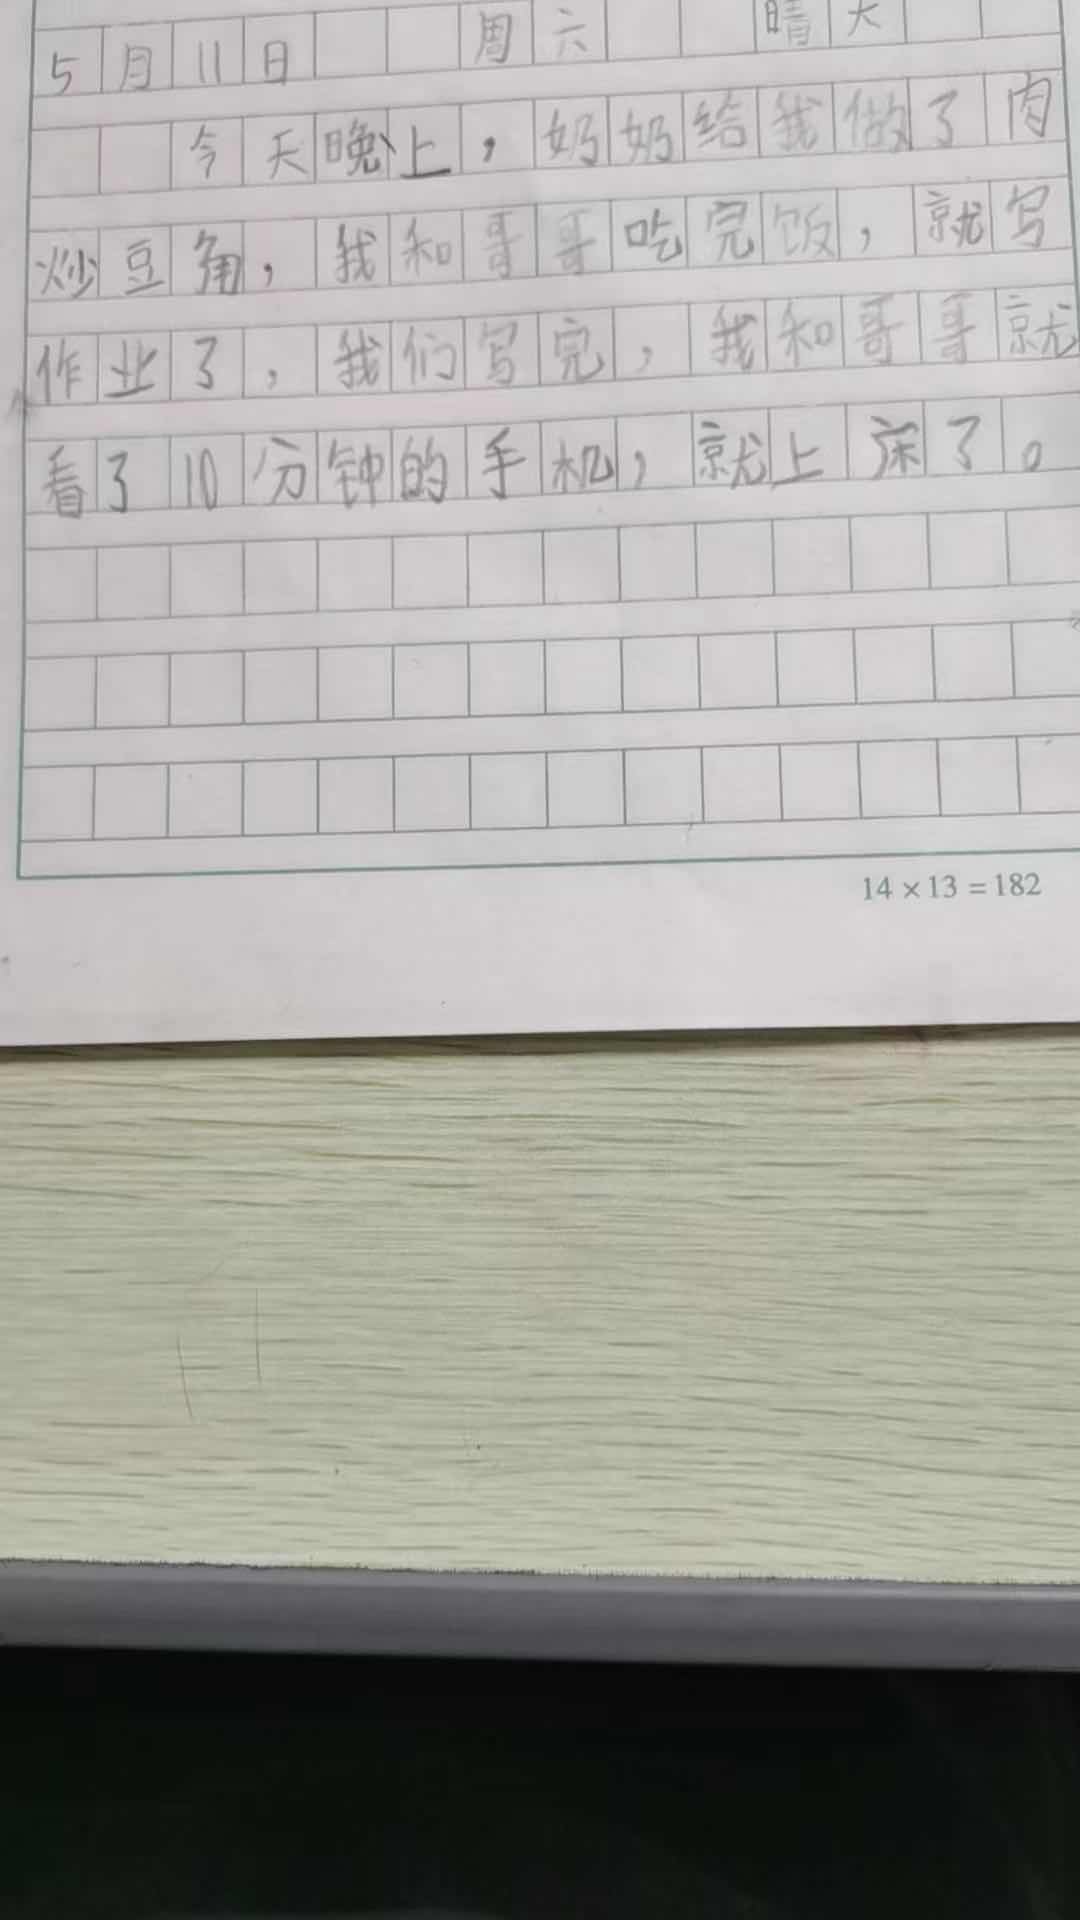 5月11日 周六 晴天
今天晚上，奶奶给我做了肉
炒豆角，我和哥哥吃完饭，就写
作业了，我们写完，我和哥哥就
看了10分钟的手机，就上床了。
14×13=182